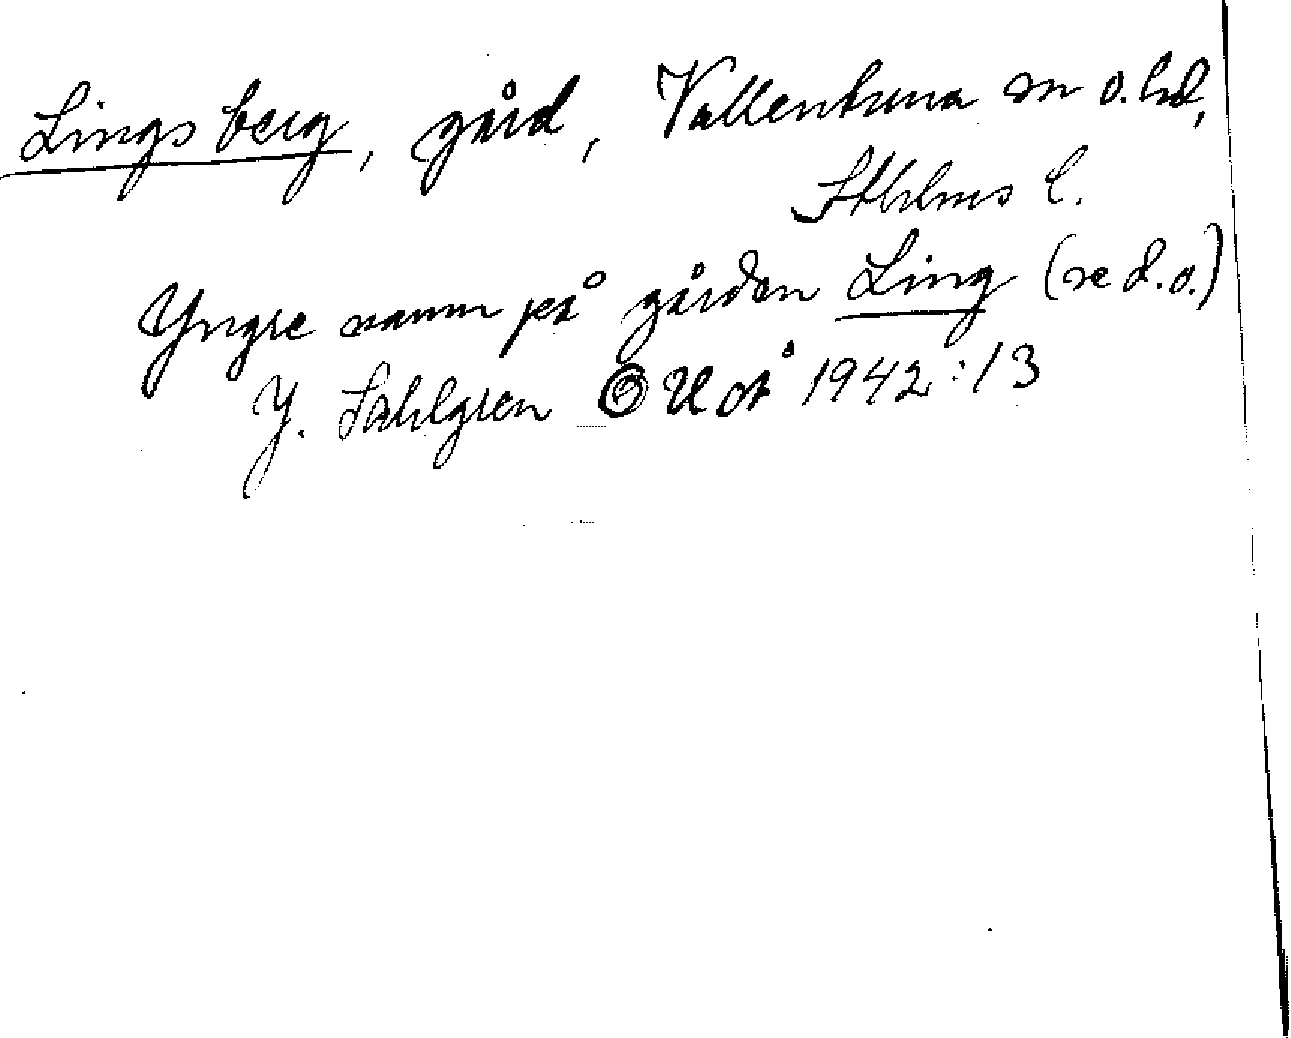 Lingsberg, gård, Vallentuna sn o. hd,
Sthlms l.
Yngre namn på gården Ling (se d.o.)
J. Sahlgren i UoÅ 1942:13